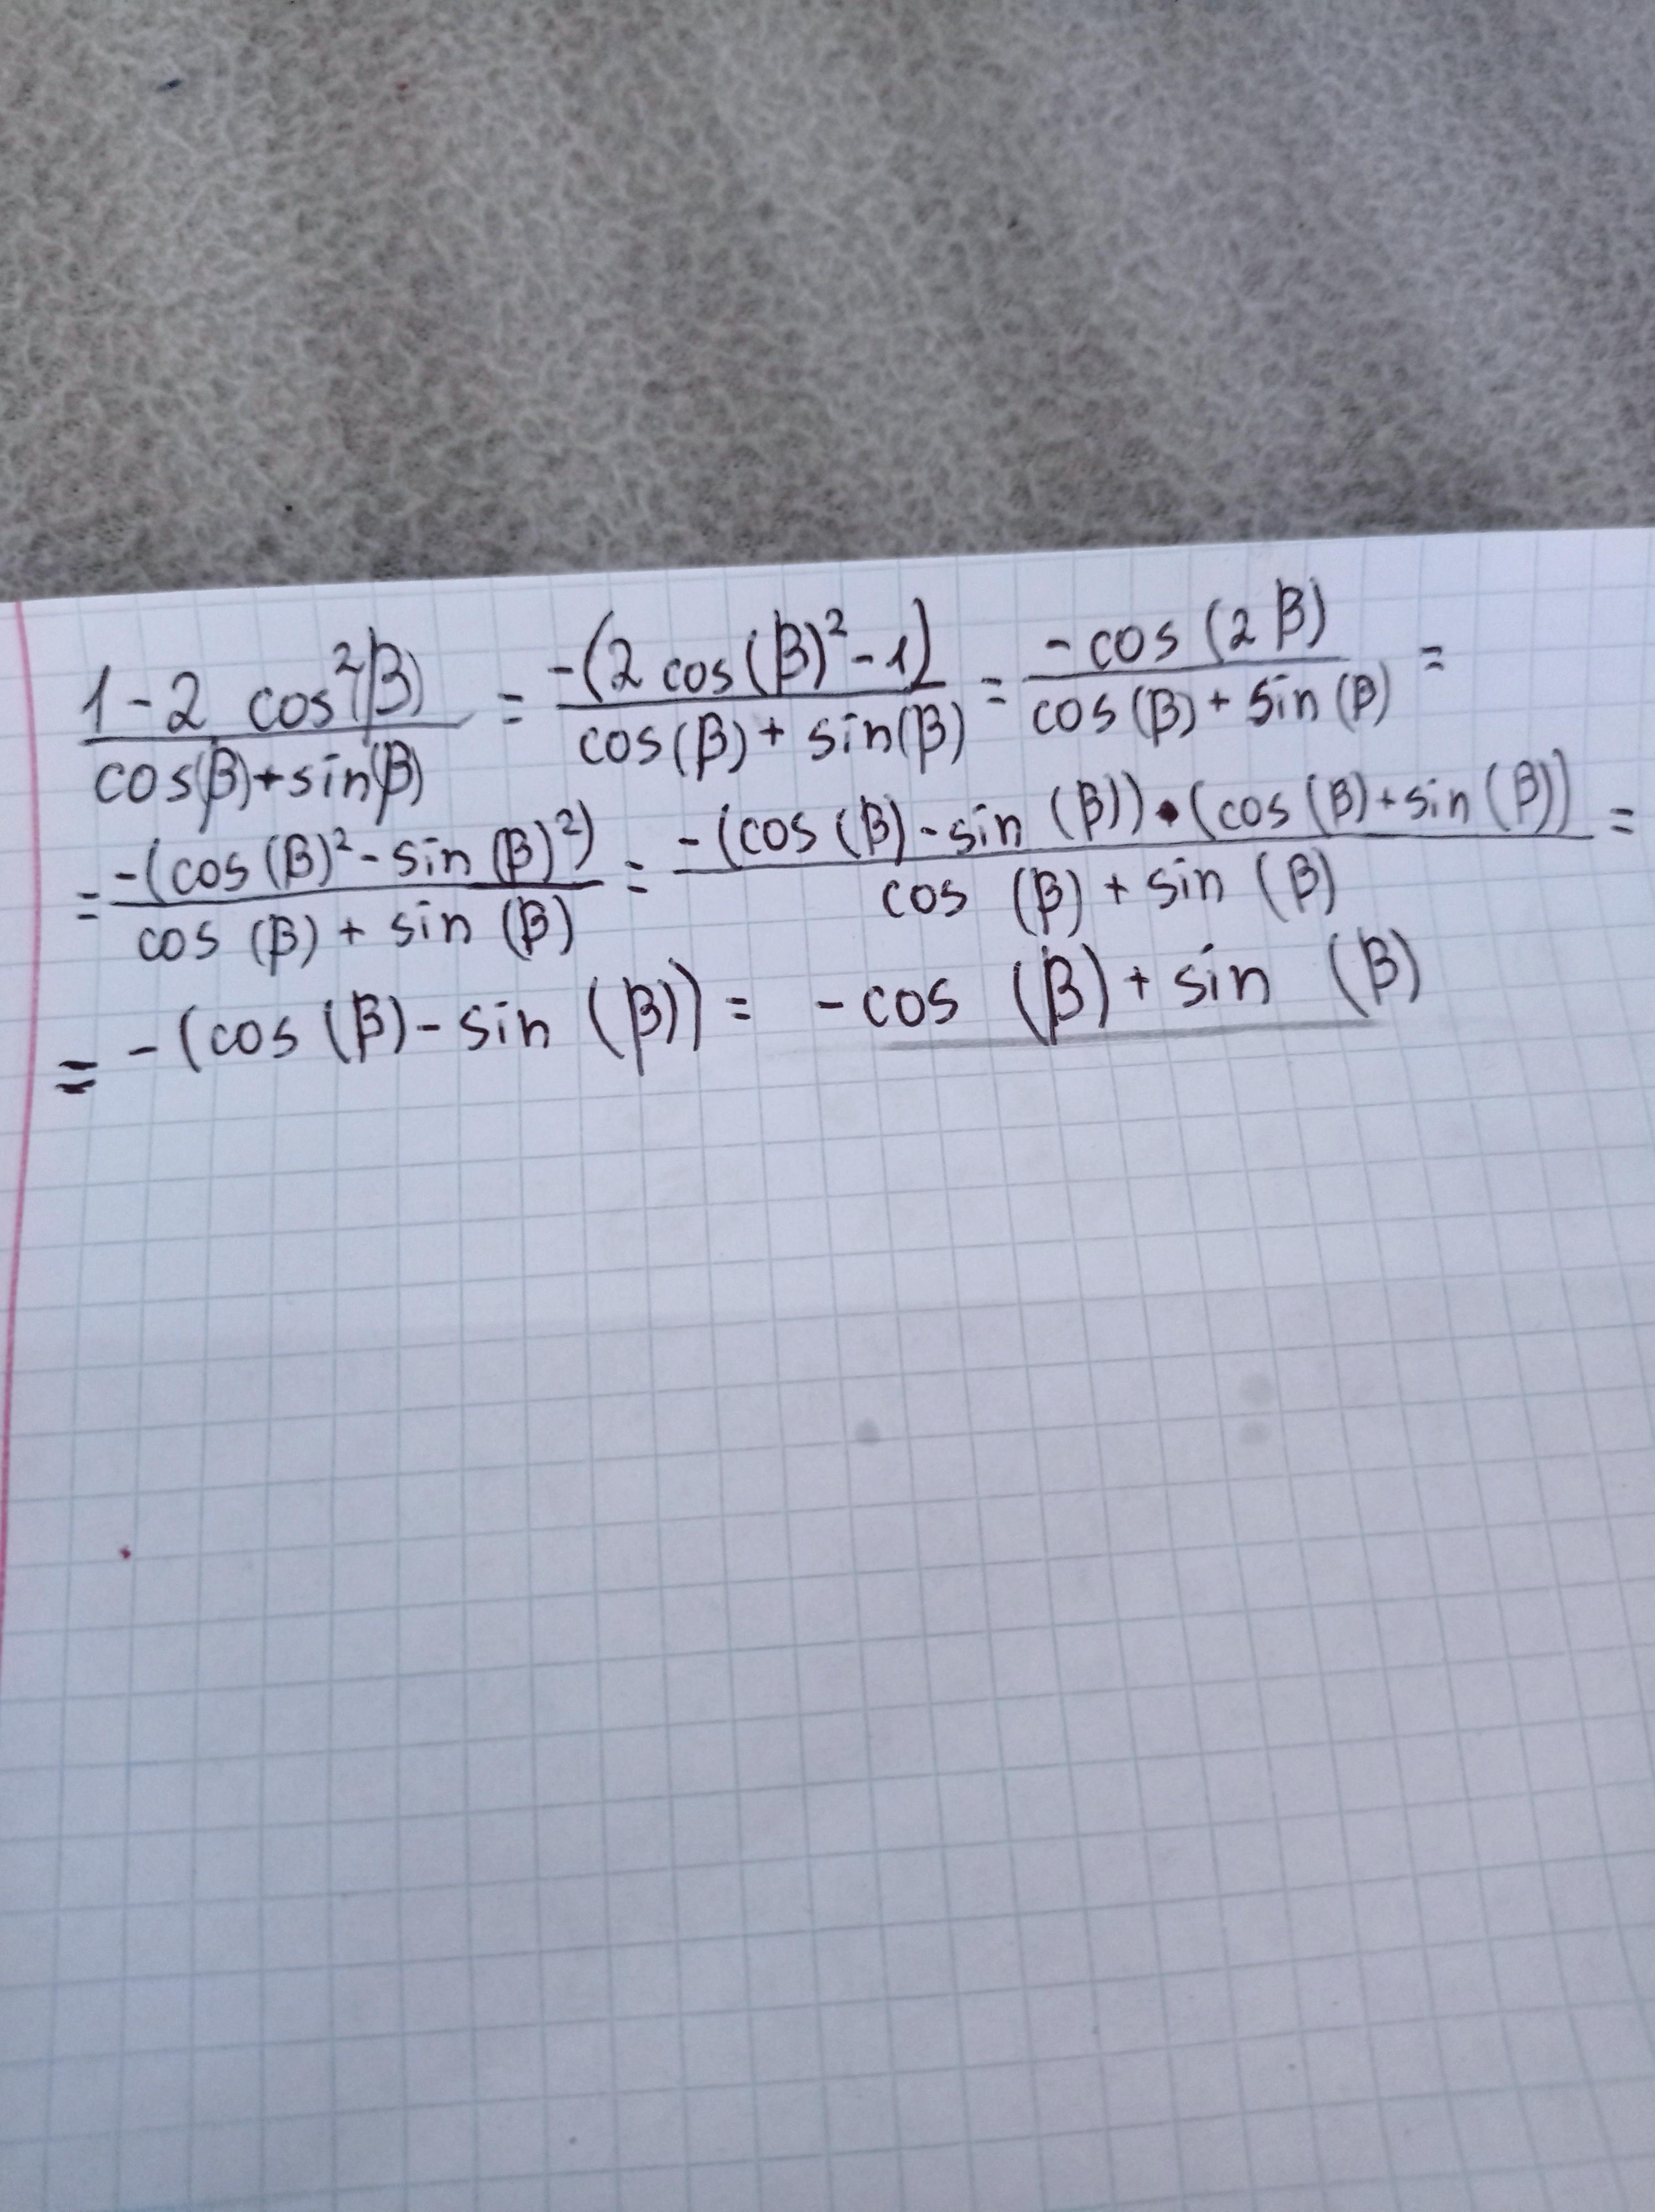 (1-2 cos²(β))/(cos(β)+sin(β)) = (-(2 cos(β)²-1))/(cos(β)+sin(β)) = (-cos(2β))/(cos(β)+sin(β)) =
= (-(cos(β)²-sin(β)²))/(cos(β)+sin(β)) = (-(cos(β)-sin(β))•(cos(β)+sin(β)))/(cos(β)+sin(β)) =
= -(cos(β)-sin(β)) = -cos(β)+sin(β)